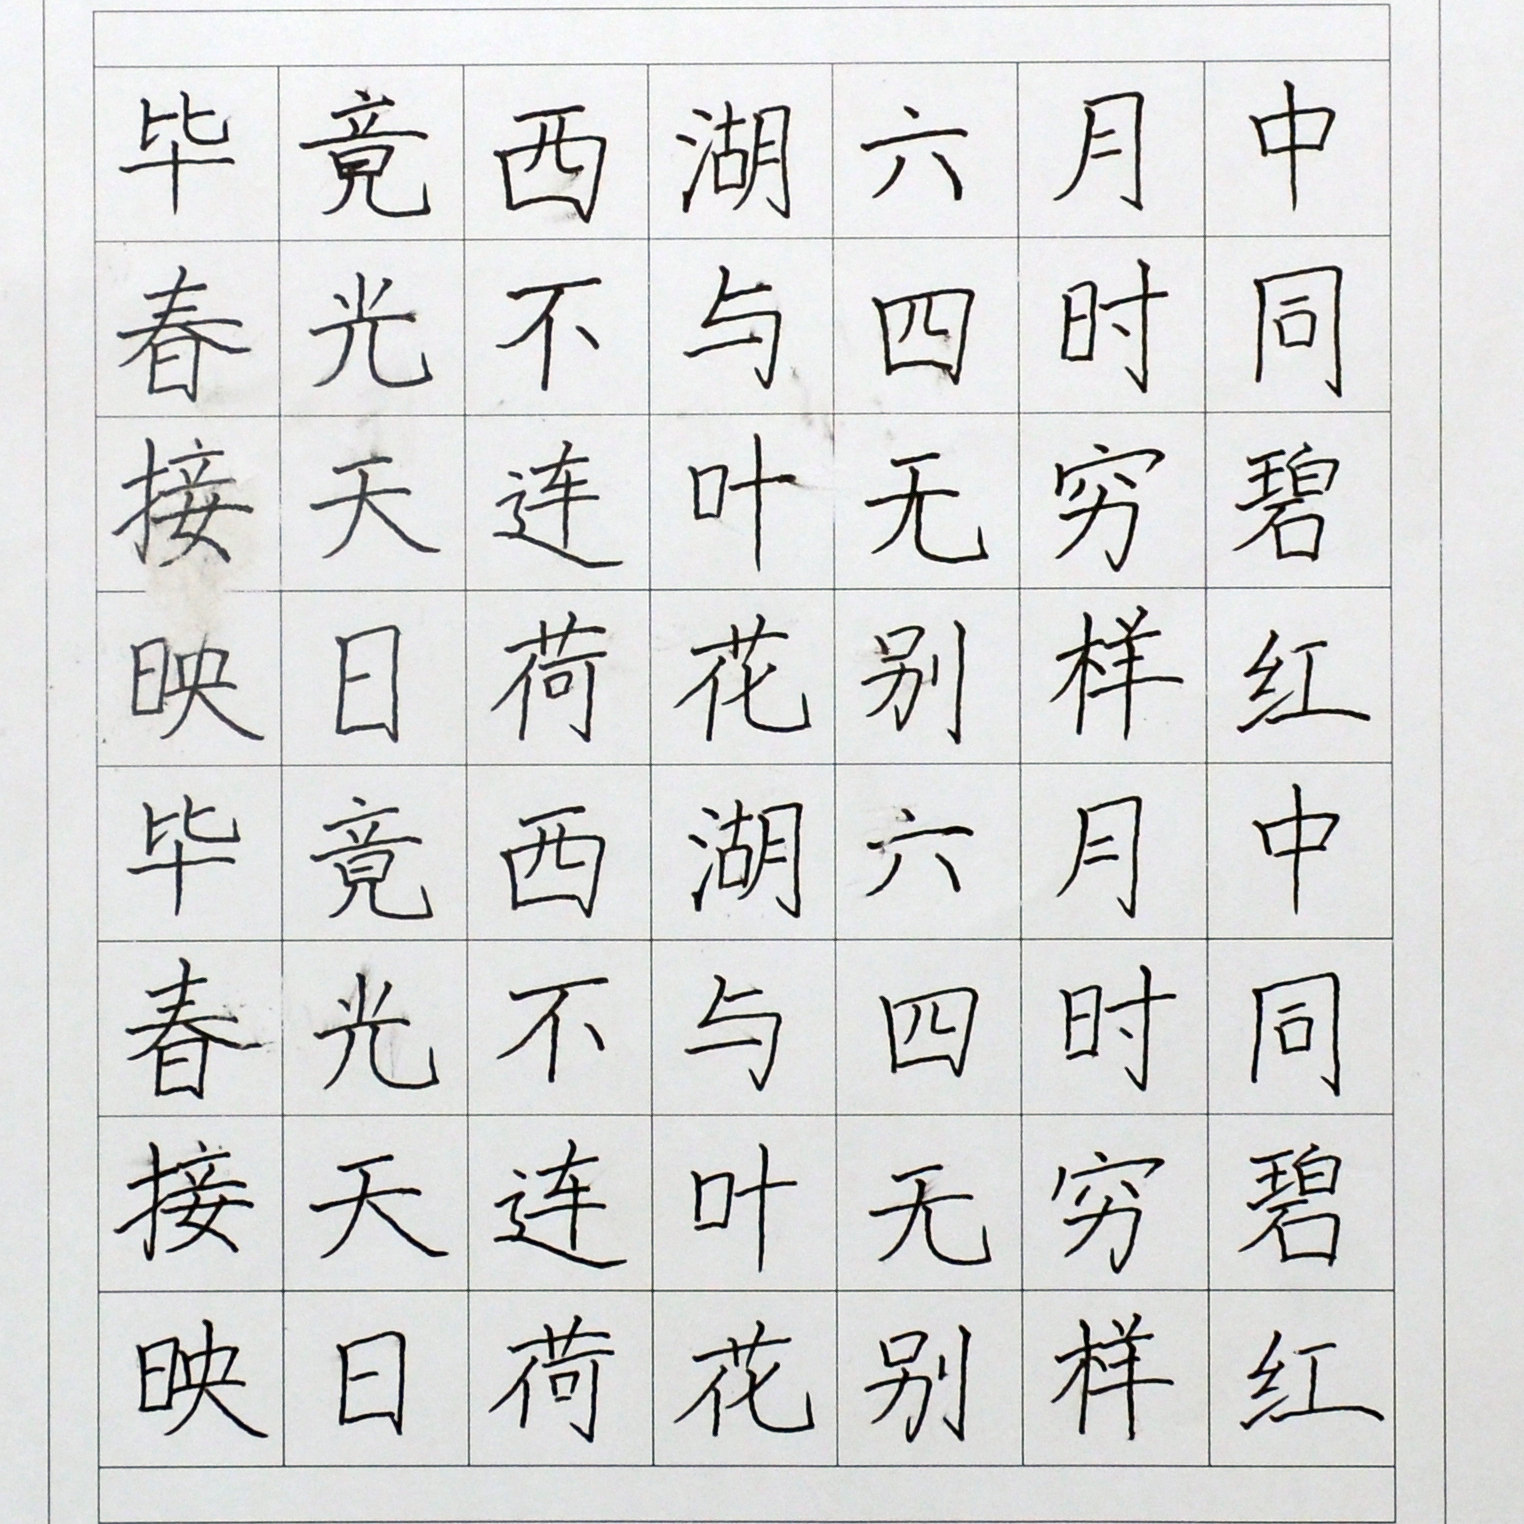 毕竟西湖六月中
春光不与四时同
接天连叶无穷碧
映日荷花别样红
毕竟西湖六月中
春光不与四时同
接天连叶无穷碧
映日荷花别样红